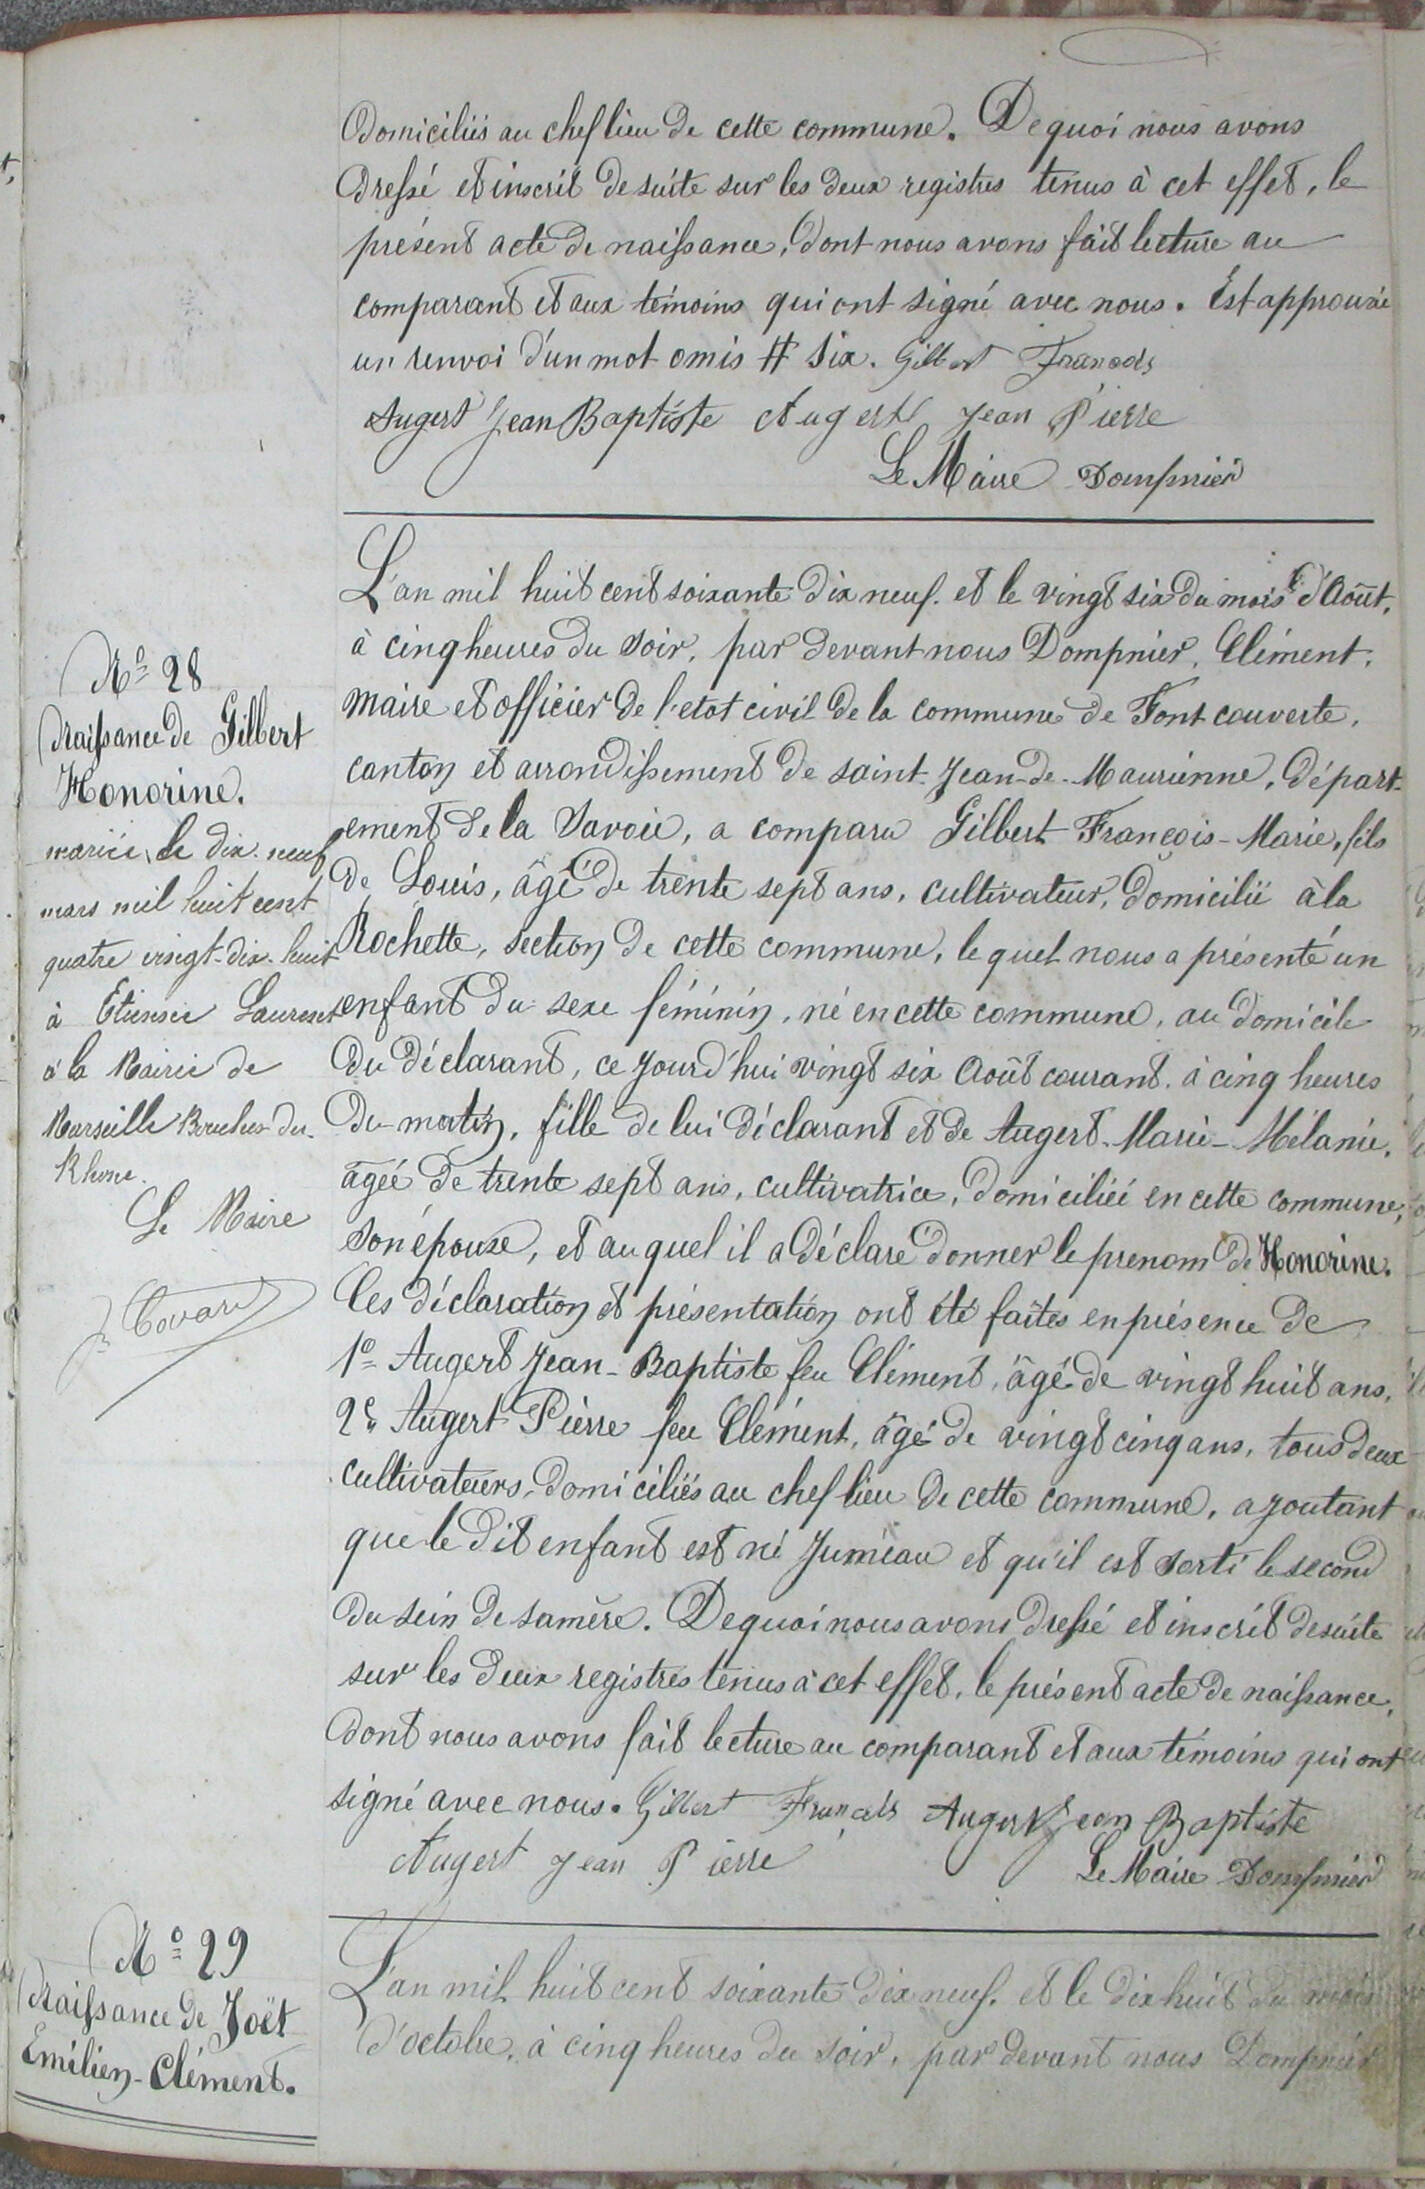 domiciliés au chef lieu de cette commune. De quoi nous avons
dressé et inscrit de suite sur les deux registres tenus à cet effet, le
présent acte de naissance, dont nous avons fait lecture au
comparant et aux témoins qui ont signé avec nous. Est approuvé
un renvoi d'un mot omis # six. Gilbert François
Augert Jean Baptiste Augert Jean Pierre
Le Maire Dompnier
N° 28
Naissance de Gilbert
Honorine.
mariée le dix-neuf
mars mil huit cent
quatre vingt-dix-huit
à Etienne Laurent
à la Mairie de
Marseille Bouches-du-
Rhone.
Le Maire
L'an mil huit cent soixante dix neuf. et le vingt six du mois d'Août,
à cinq heures du soir, par devant nous Dompnier, Clément,
maire et officier de l'etat civil de la commune de Fontcouverte,
canton et arrondissement de saint-Jean-de-Maurienne, départ-
ement de la Savoie, a comparu Gilbert François-Marie, fils
de Louis, âgé de trente sept ans, cultivateur, domicilié à la
Rochette, section de cette commune, le quel nous a présenté un
enfant du sexe féminin, né en cette commune, au domicile
du déclarant, ce jourd'hui vingt six Août courant à cinq heures
du matin, fille de lui déclarant et de Augert-Marie-Mélanie,
âgée de trente sept ans, cultivatrice, domiciliée en cette commune,
son épouse, et au quel il a déclaré donner le prenom de Honorine.
Ces déclaration et présentation ont été faites en présence de
1° Augert Jean-Baptiste feu Clément, âgé de vingt huit ans,
2° Augert Pierre feu Clément, âgé de vingt cinq ans, tous deux
cultivateurs, domiciliés au chef lieu de cette commune, ajoutant
que le dit enfant est né Jumeau et qu'il est sorti le second
du sein de sa mère. De quoi nous avons dressé et inscrit de suite
sur les deux registres tenus à cet effet, le présent acte de naissance,
dont nous avons fait lecture au comparant et aux témoins qui ont
signé avec nous. Gilbert François Augert Jean Baptiste
Augert Jean Pierre Le Maire Dompnier
N° 29
Naissance de Joët
Emilien-Clément.
L'an mil huit cent soixante dix neuf. et le dix huit du mois
d'octobre, à cinq heures du soir, par devant nous Dompnier